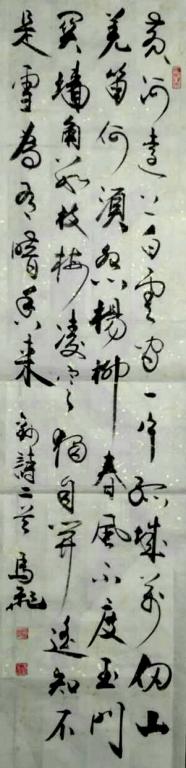 黄河遠上白雲間一片孤城萬仞山
羌笛何須怨楊柳春風不度玉門
關墻角數枝梅凌寒獨自開遥知不
是雪為有暗香来
詩二首 馬